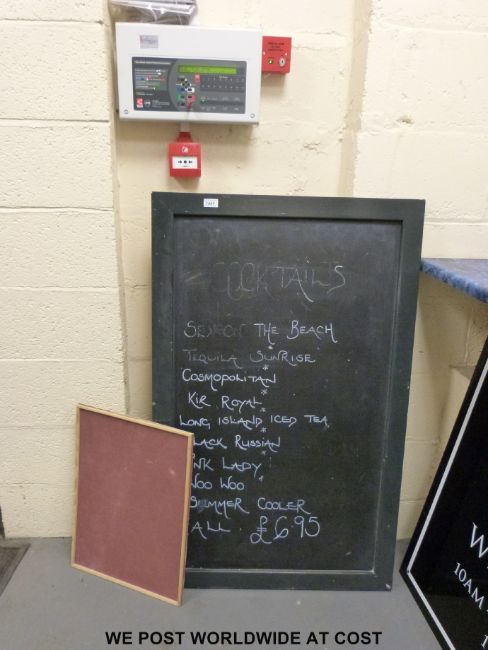 COCKTAILS
SEX ON THE BEACH
TEQUILA SUNRISE
*
COSMOPOLITAN
*
KIR ROYAL
*
LONG ISLAND ICED TEA
*
LACK RUSSIAN
*
NK LADY
*
OO WOO
SUMMER COOLER
ALL £6.95
W
10AM
1
WE POST WORLDWIDE AT COST